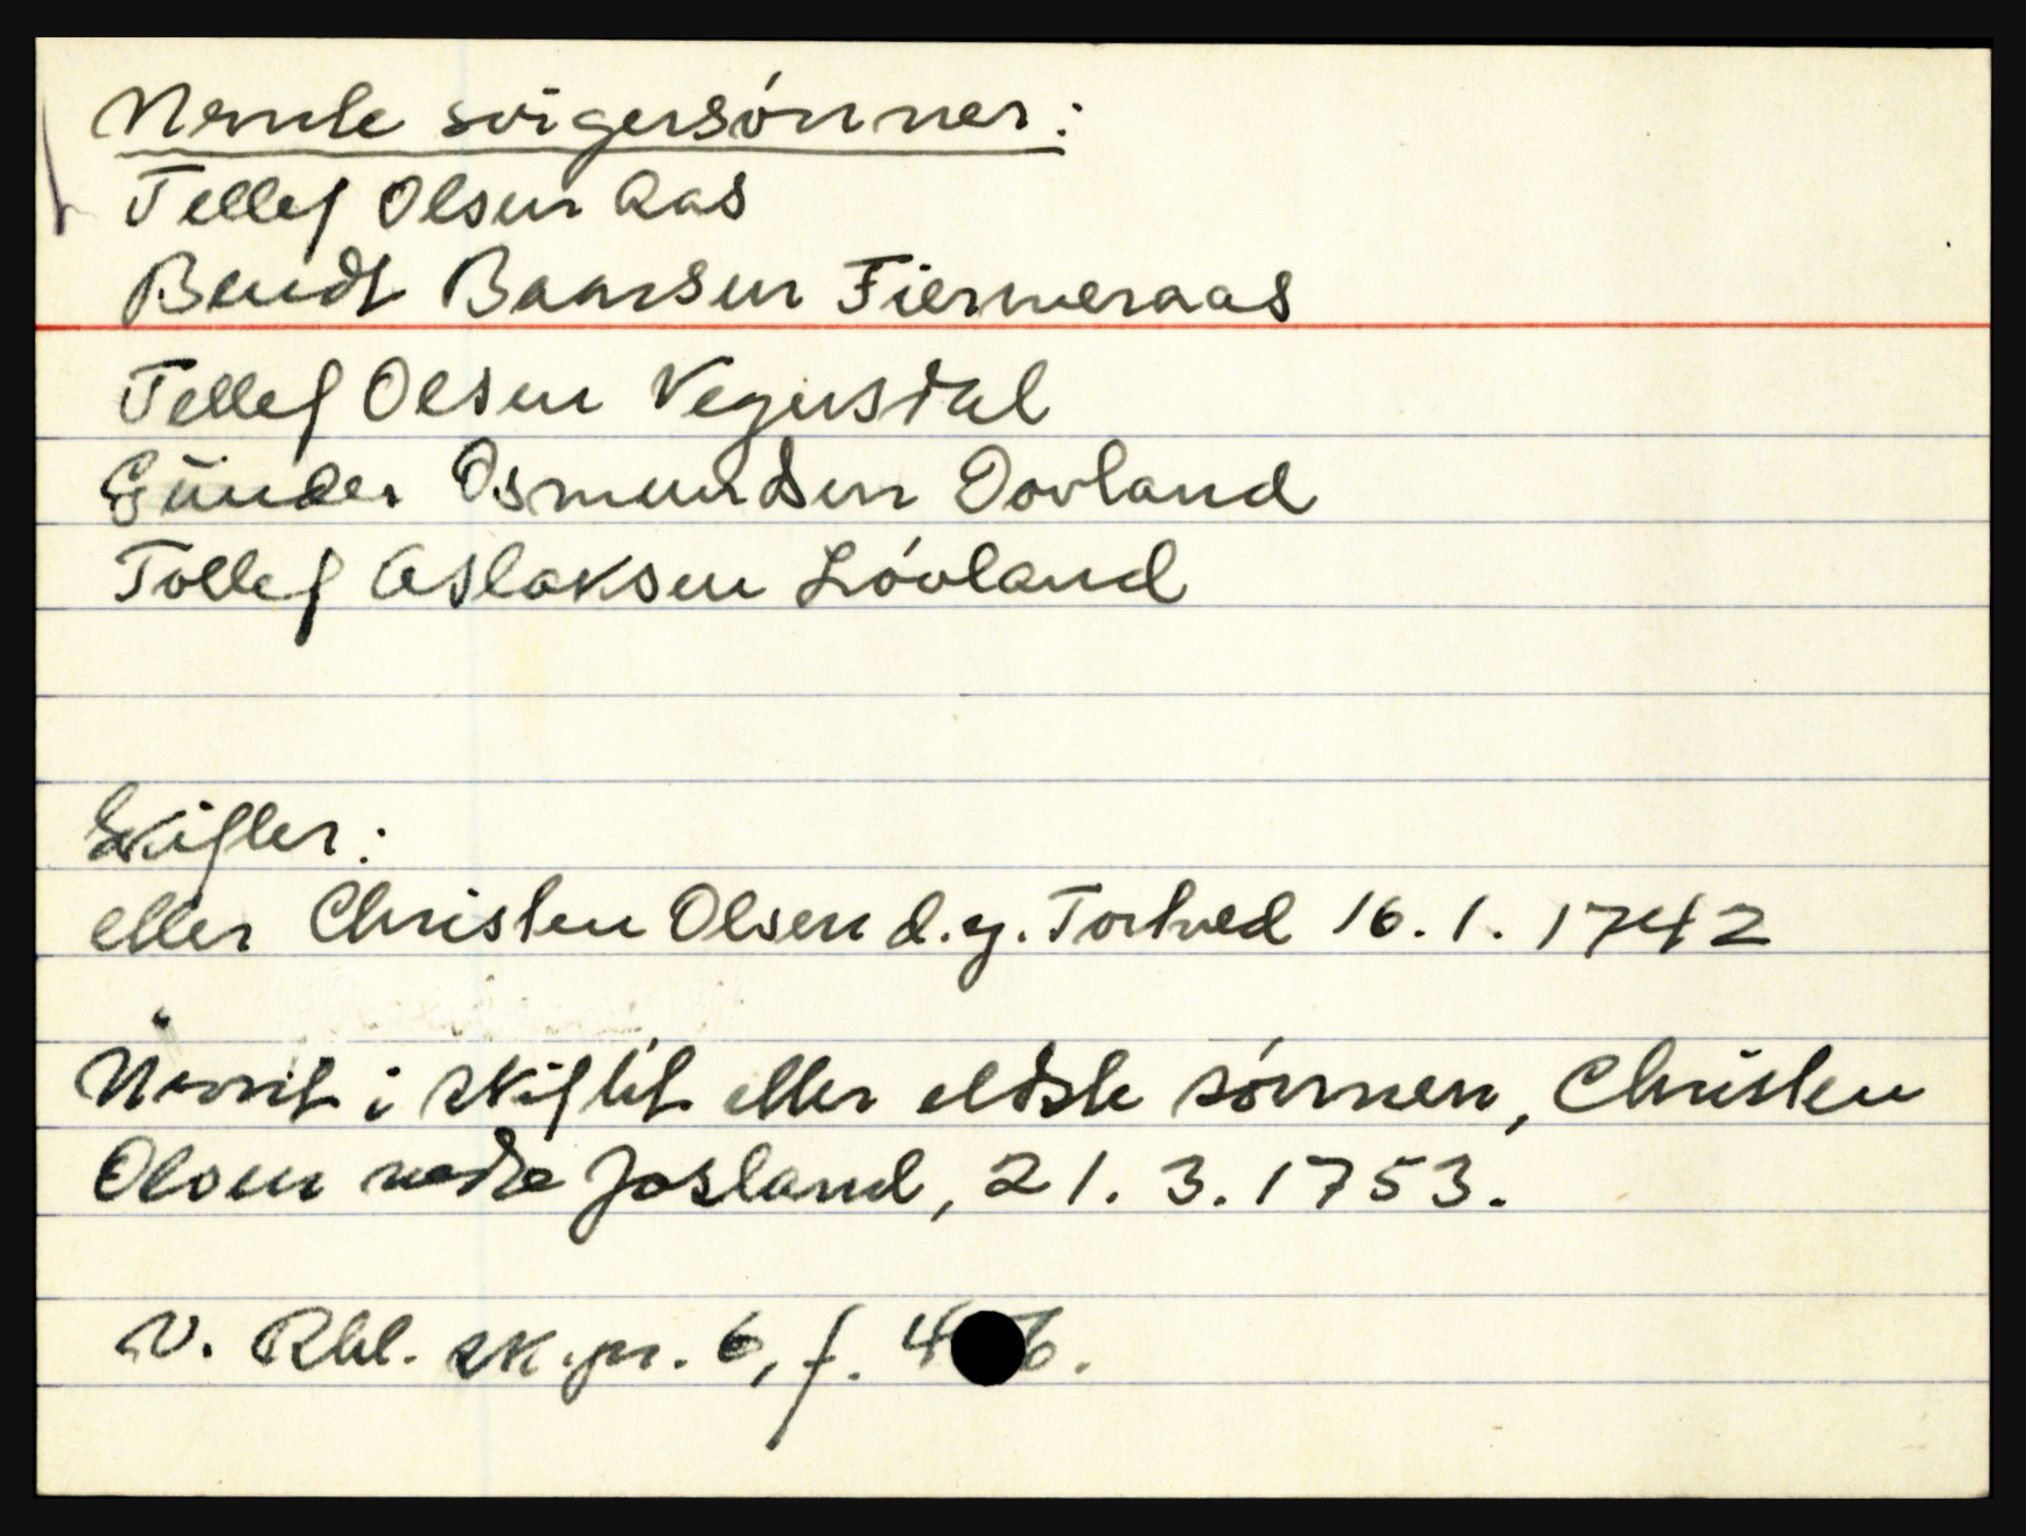 Nemte svigersónner:
Tellef Olsen Aas
Bendt Baarsen Fiermeraas
Tellef Olsen Vegusdal
Günder Osmundsen Dovland
Tollef Aslaksen Lóvland
Skifter:
etter Christen Olsen d.y. Tortved 16.1.1742
Nevnt i skiftet etter eldste sónnen, Christen
Olsen nedre Josland, 21.3.1753.
V. Rbl. sk.pr. 6, f.